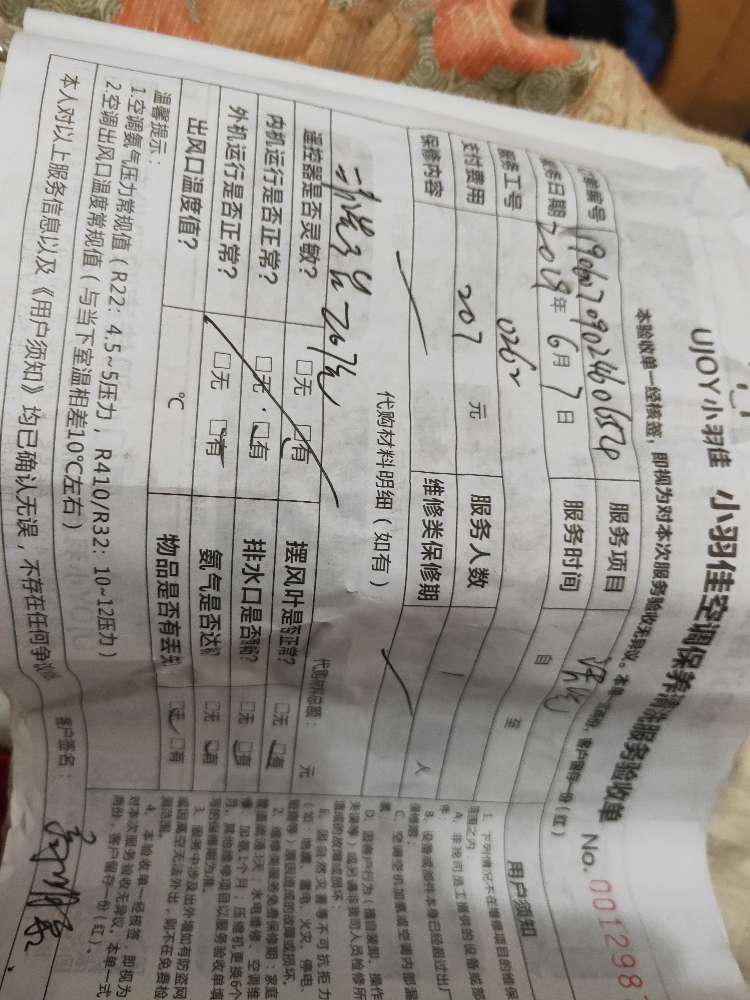 UJOY小羽佳 小羽佳空调保养清洗服务验收单 No.001298
本验收单一经核签，即视为对本次服务验收无异议。本单一式两份，客户留存一份（红）
编号 服务项目 清洗
服务日期 2019年6月7日 服务时间 自 至
服务工号 0262 服务人数 1 人
支付费用 207 元 维修类保修期
保修内容
代购材料明细（如有）
代购材料总额： 元
遥控器是否灵敏？ □无 □有 摆风叶是否正常？ □无 □有
内机运行是否正常？ □无 □有 排水口是否 ？ □无 □有
外机运行是否正常？ □无 □有 氨气是否达 □无 □有
出风口温度值？ ℃ 物品是否有丢失 □无 □有
温馨提示：
1.空调氨气压力常规值（R22：4.5~5压力，R410/R32：10~12压力）
2.空调出风口温度常规值（与当下室温相差10℃左右）
本人对以上服务信息以及《用户须知》均已确认无误，不存在任何争议
客户签名：
用户须知
1. 下列情况不在维修项目的维保
范围之内：
A. 非我司员工维修的设备或部
件
B. 设备或部件本身已经超过出厂
保修期；
C. 空调空机加氨或空调内部漏
氨
D. 因客户行为（擅自装卸、操作
失误等）或另请非我司人员检修所
造成的故障或损坏；
E. 因自然灾害等不可抗拒力
（如：地震、雷电、火灾、停电、
短路等）原因造成的故障或损坏。
2. 维修类服务免费保修期：家庭
管道疏通3天；水电维修、空调维
修、加氨1个月；压缩机更换6个
月，其他维修项目以服务验收单填
写的保修期为准。
3. 服务中涉及出外墙如有防盗网
或因高空无法外出，则不在免费检
测范围。
4. 本验收单一经核签，即视为
对本次服务验收无异议，本单一式
两份，客户留存一份（红）。